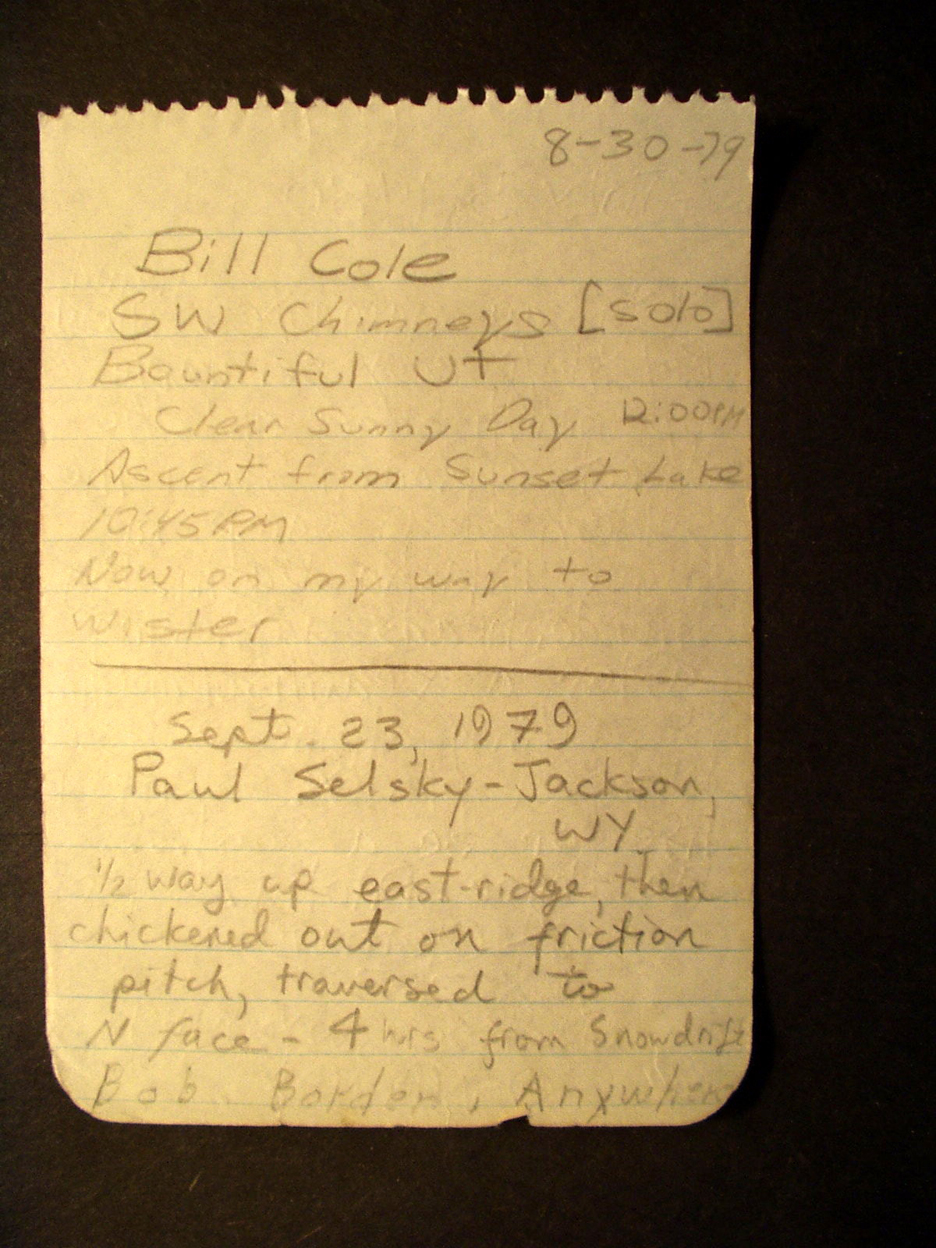 8-30-79
Bill Cole
SW Chimneys [solo]
Bountiful UT
Clear Sunny Day 12:00PM
Ascent from Sunset Lake
10:45 PM
Now on my way to
Wister
Sept. 23, 1979
Paul Selsky-Jackson,
WY
1/2 way up east-ridge, then
chickened out on friction
pitch, traversed to
N face - 4 hrs from Snowdrift
Bob Borden, Anywhere